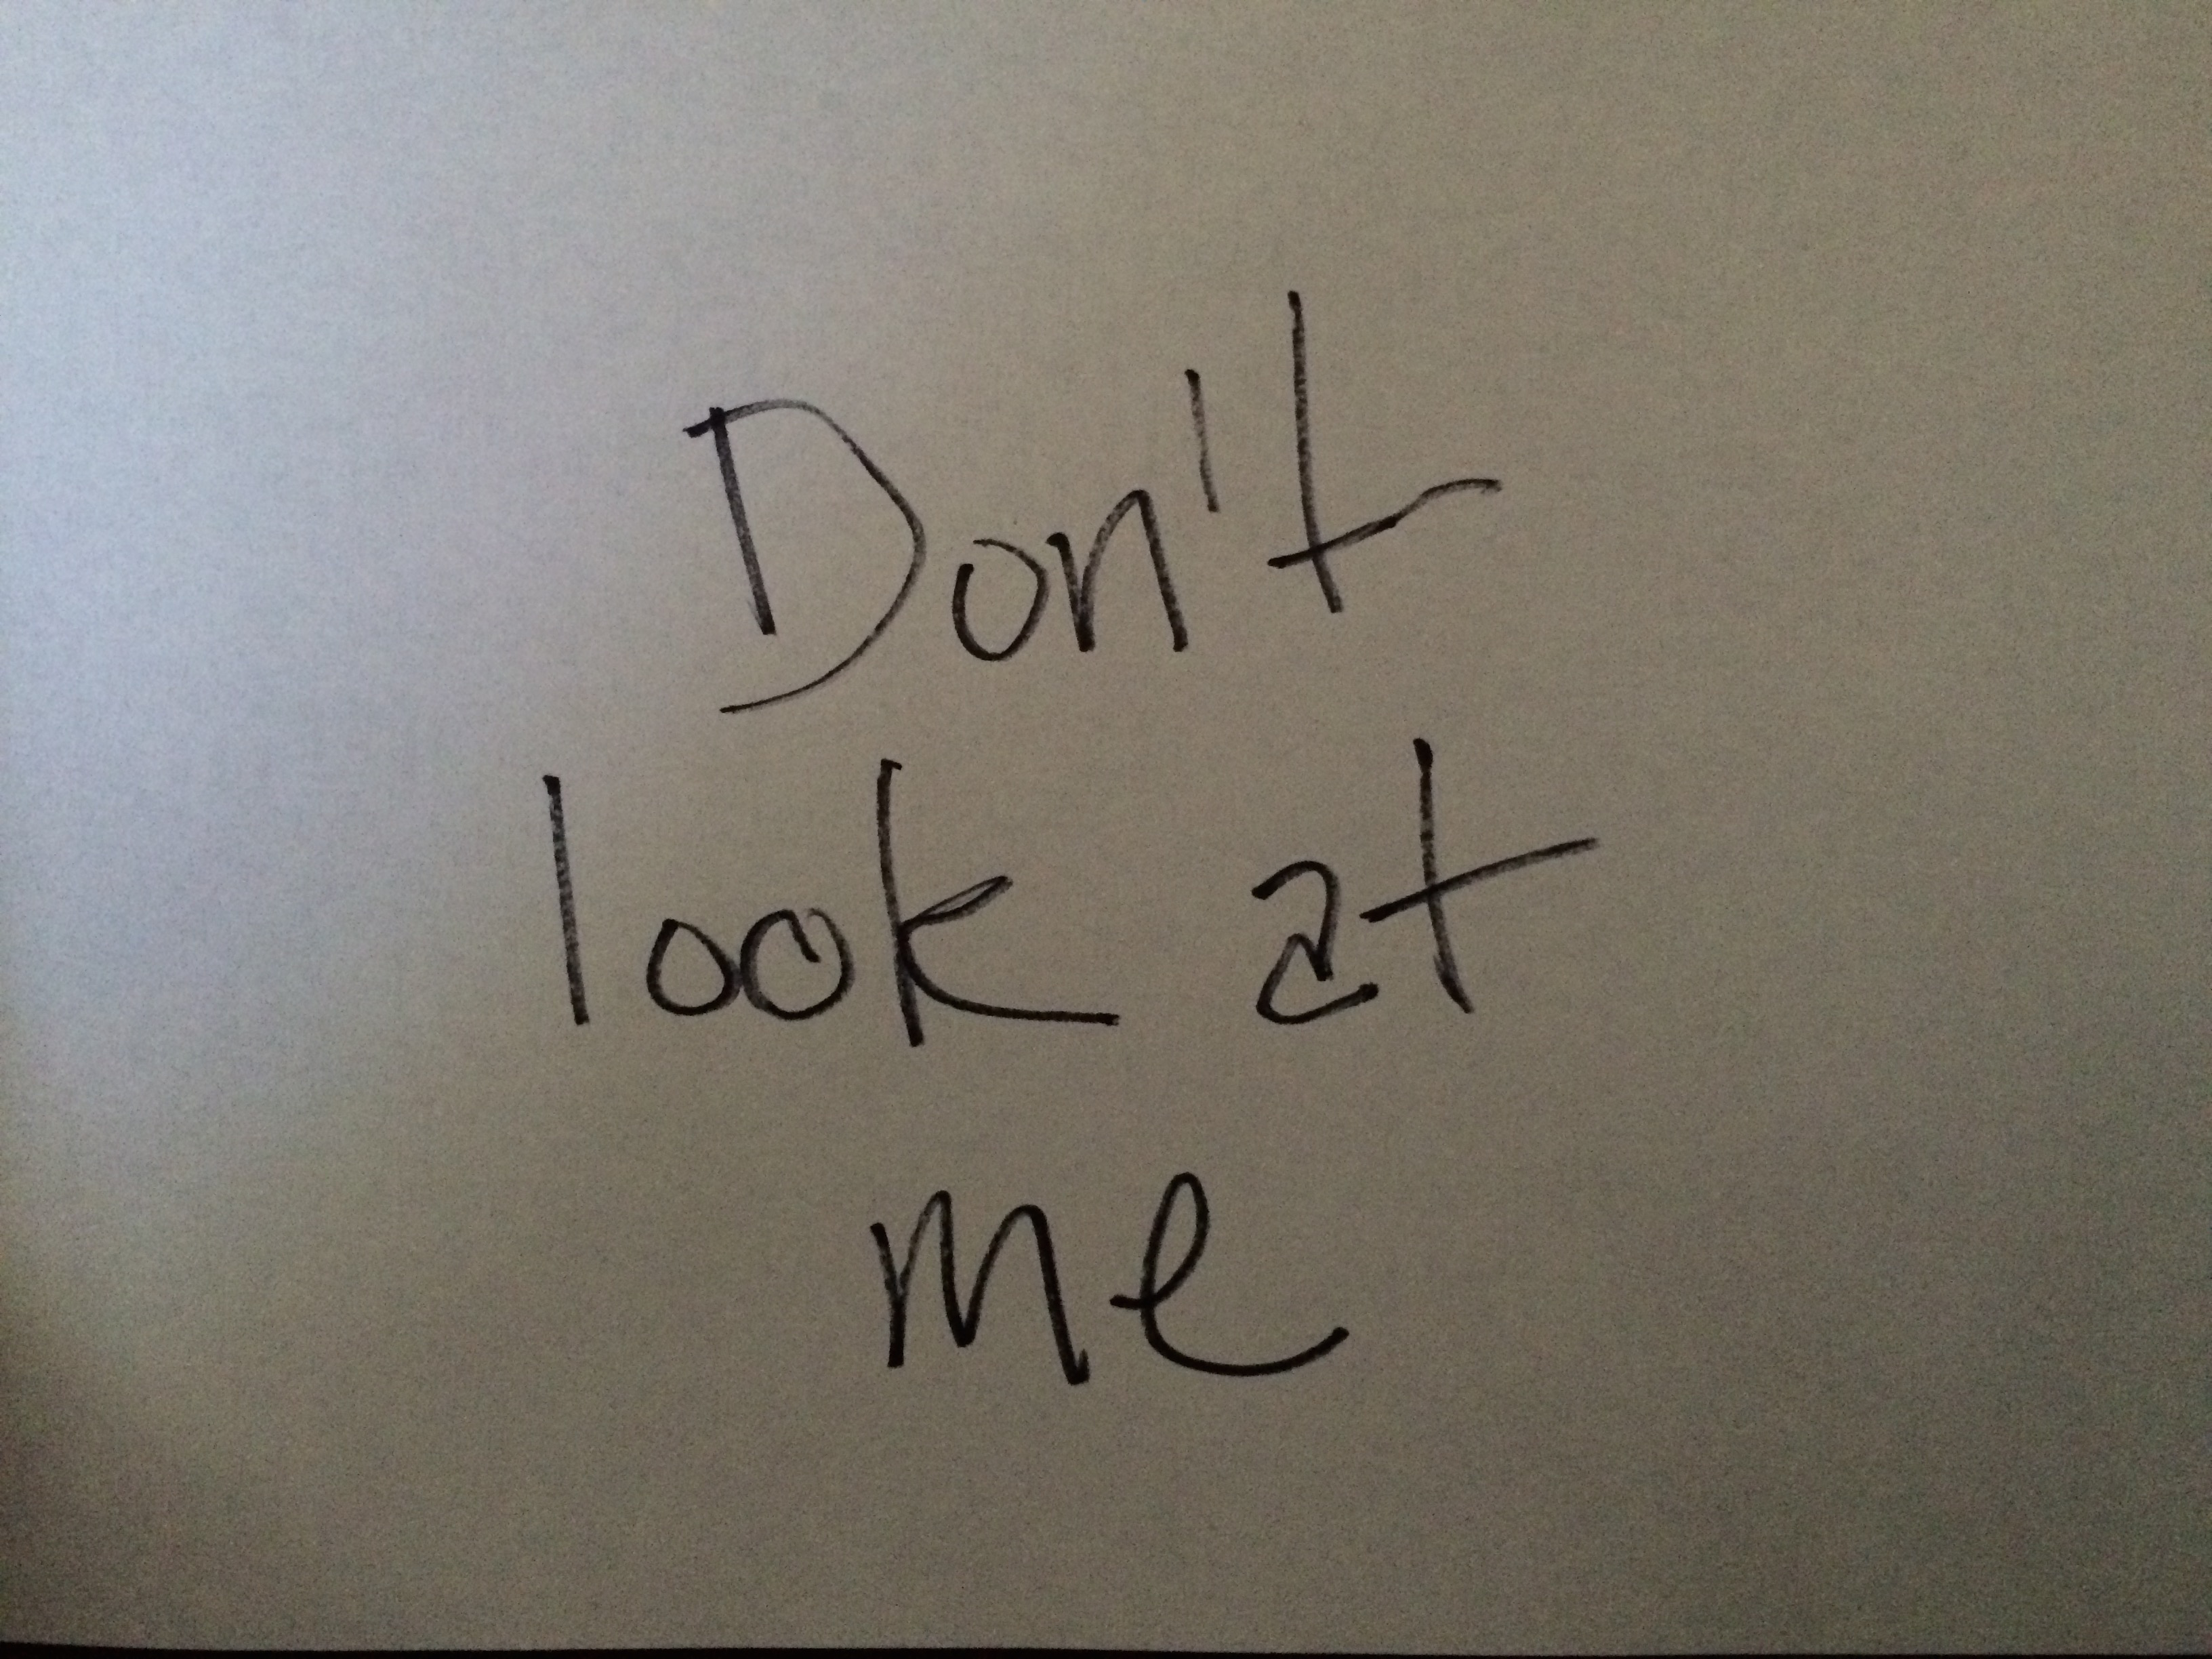 Don't
look at
me